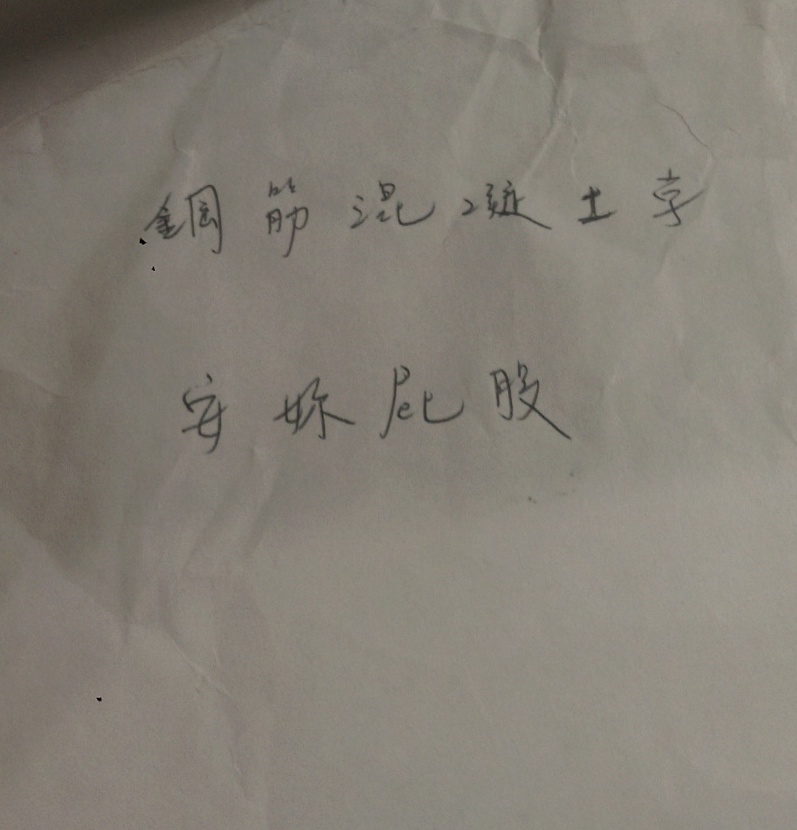 鋼筋混凝土字
安妳屁股